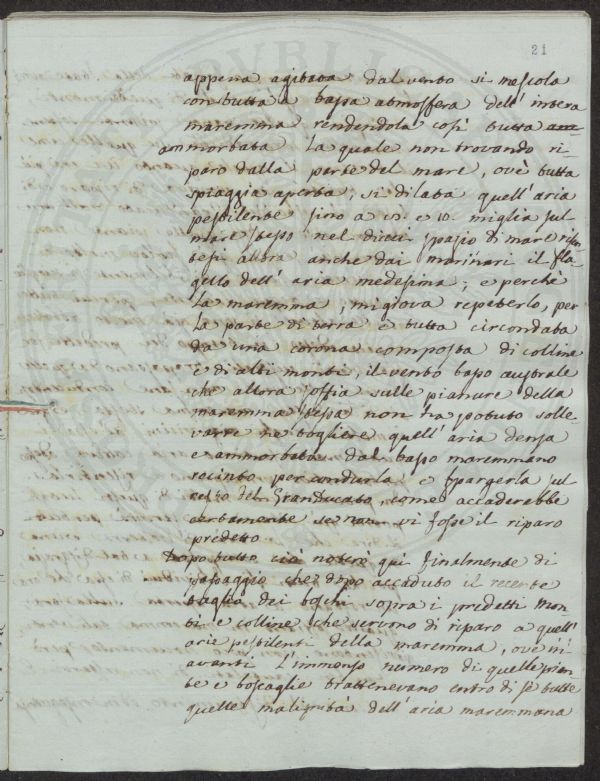 21
appena agitata dal vento si mescola
con tutta la bassa atmosfera dell'intera
maremma rendendola così tutta
ammorbata la quale non trovando ri-
paro dalla parte del mare, ov'è tutta
spiaggia aperta, si dilata quell'aria
pestilente fino a 10. miglia sul
mare stesso nel di
cui spazio di mare
tesi allora anche dai marinari il fla-
gello dell'aria medesima; e perchè
la maremma, mi giova repeterlo, per
la parte di terra è tutta circondata
da una corona composta di colline
e di alti monti, il vento basso australe
che allora soffia sulle pianure della
maremma stessa non ha potuto solle-
varre ne togliere quell'aria densa
e ammorbata dal basso maremmano
recinto per condurla e spargerla sul
resto del Granducato, come accaderebbe
certamente se non vi fosse il riparo
predetto
Dopo tutto ciò noterò quì finalmente di
passaggio che dopo accaduto il recente
taglio dei boschi sopra i predetti mon-
ti e colline che servono di riparo a quell'
arie pestilenti della maremma, ove in
avanti l'immenso numero di quelle pian-
te e boscaglie trattenevano entro di se tutte
quelle malignità dell'aria maremmana